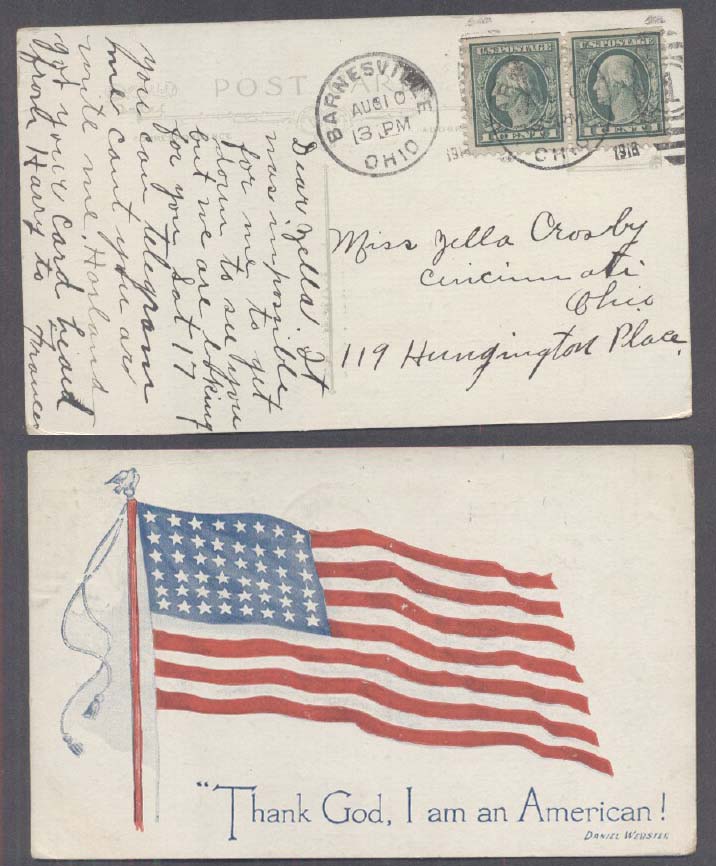 POST CARD
BARNESVILLE
AUG 10
3 PM
OHIO
U.S. POSTAGE
1 CENT 1
U.S. POSTAGE
1 CENT 1
OHIO
1918
Dear Zella. It
was impossible
for me to get
down to see you
but we are looking
for you Sat 17
you can telegram
me cant you or
write me. Harland
got your card heard
from Harry to
Frances
Miss Zella Crosby
Cincinnati
Ohio
119 Hungington Place.
"Thank God, I am an American!
DANIEL WEBSTER